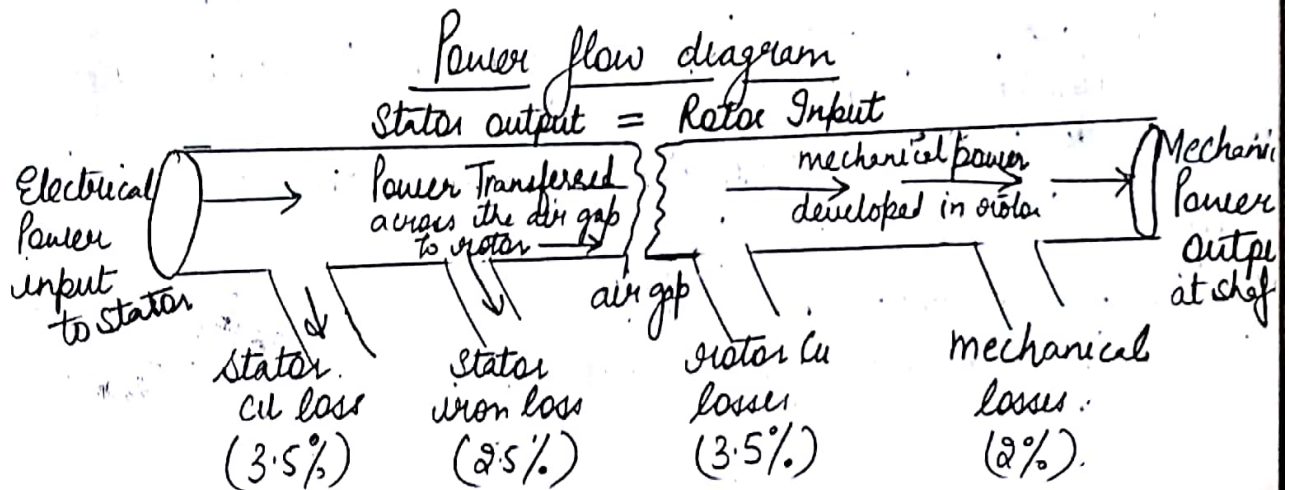 Power flow diagram
Stator output = Rotor Input
Electrical
Power
input
to stator
Power Transferred
across the air gap
to rotor
air gap
mechanical power
developed in rotor
Mechani
Power
Outpu
at shaf
stator
cu loss
(3.5%)
stator
iron loss
(2.5%)
rotor Cu
losses
(3.5%)
mechanical
losses.
(2%).